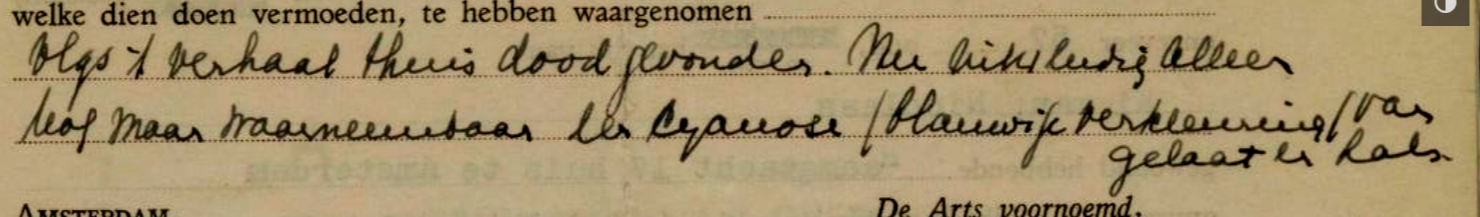 welke dien doen vermoeden, te hebben waargenomen
Vlgs 't verhaal thuis dood gevonden. Nu uitwendig alleen
nog maar waarneembaar een Cyanose (blauwige verkleuring) van
gelaat en hals
AMSTERDAM
De Arts voornoemd,